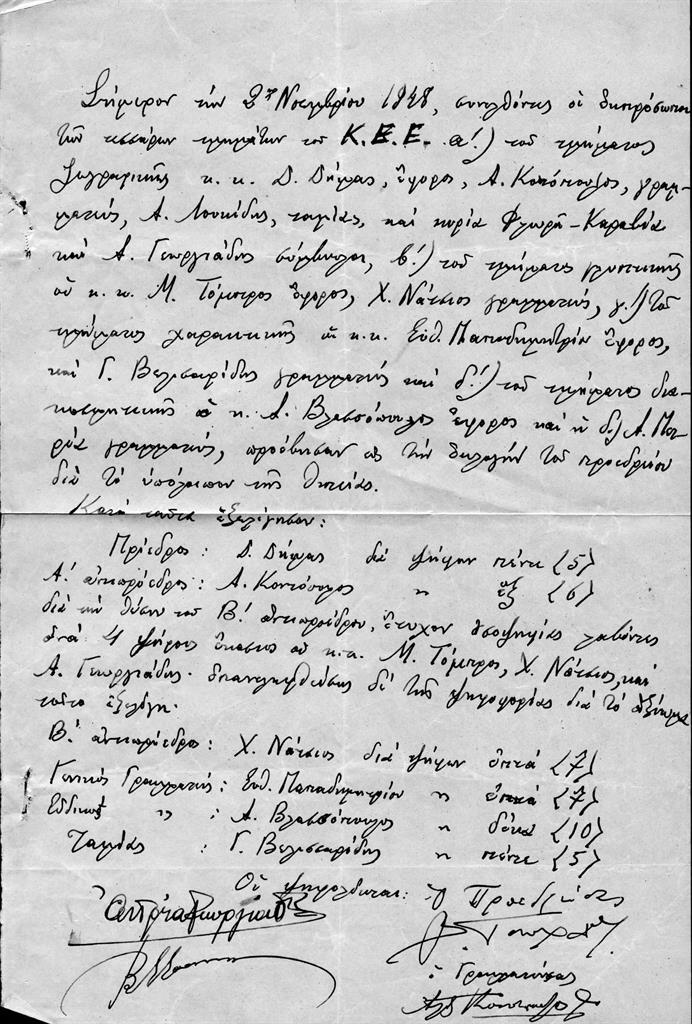 Σήμερον τὴν 2αν Νοεμβρίου 1948, συνελθόντες οἱ ἐκπρόσωποι
τῶν τεσσάρων τμημάτων τοῦ Κ.Ε.Ε. α!) τοῦ τμήματος
ζωγραφικῆς κ.κ. Δ. Δήμας, ἔφορος, Α. Κοντόπουλος, γραμ-
ματεύς, Α. Λουκίδης, ταμίας, καὶ κυρία Φλωρᾶ-Καραβία
καὶ Α. Γεωργιάδης σύμβουλοι, β!) τοῦ τμήματος γλυπτικῆς
οἱ κ.κ. Μ. Τόμπρος ἔφορος, Χ. Νάτσιος γραμματεύς, γ!) τοῦ
τμήματος χαρακτικῆς οἱ κ.κ. Εὐθ. Παπαδημητρίου ἔφορος,
καὶ Γ. Βελισσαρίδης γραμματεύς καὶ δ!) τοῦ τμήματος δια-
κοσμητικῆς ὁ κ. Α. Βλασσόπουλος ἔφορος καὶ ἡ δὶς Α.
γραμματεύς, προέβησαν εἰς τὴν ἐκλογὴν τοῦ προεδρείου
διὰ τὸ ὑπόλοιπον τῆς θητείας.
Κατὰ ταύτην ἐξελέγησαν:
Πρόεδρος: Δ. Δήμας διὰ ψήφων πέντε (5)
Α! ἀντιπρόεδρος: Α. Κοντόπουλος " ἓξ (6)
διὰ τὴν θέσιν τοῦ Β! ἀντιπροέδρου, ἔτυχον ἰσοψηφίας λαβόντες
ἀνὰ 4 ψήφους ἕκαστος οἱ κ.κ. Μ. Τόμπρος, Χ. Νάτσιος, καὶ
Α. Γεωργιάδης· ἐπαναληφθείσης δὲ τῆς ψηφοφορίας διὰ τὸ ἀξίωμα
τοῦτο ἐξελέγη.
Β! ἀντιπρόεδρος: Χ. Νάτσιος διὰ ψήφων ἑπτά (7)
Γενικὸς Γραμματεύς: Εὐθ. Παπαδημητρίου " ἑπτά (7)
Εἰδικὸς " : Α. Βλασσόπουλος " δέκα (10)
Ταμίας : Γ. Βελισσαρίδης " πέντε (5)
Οἱ ψηφολέκται: Ὁ Προεδρεύσας
ὁ Γραμματεύσας